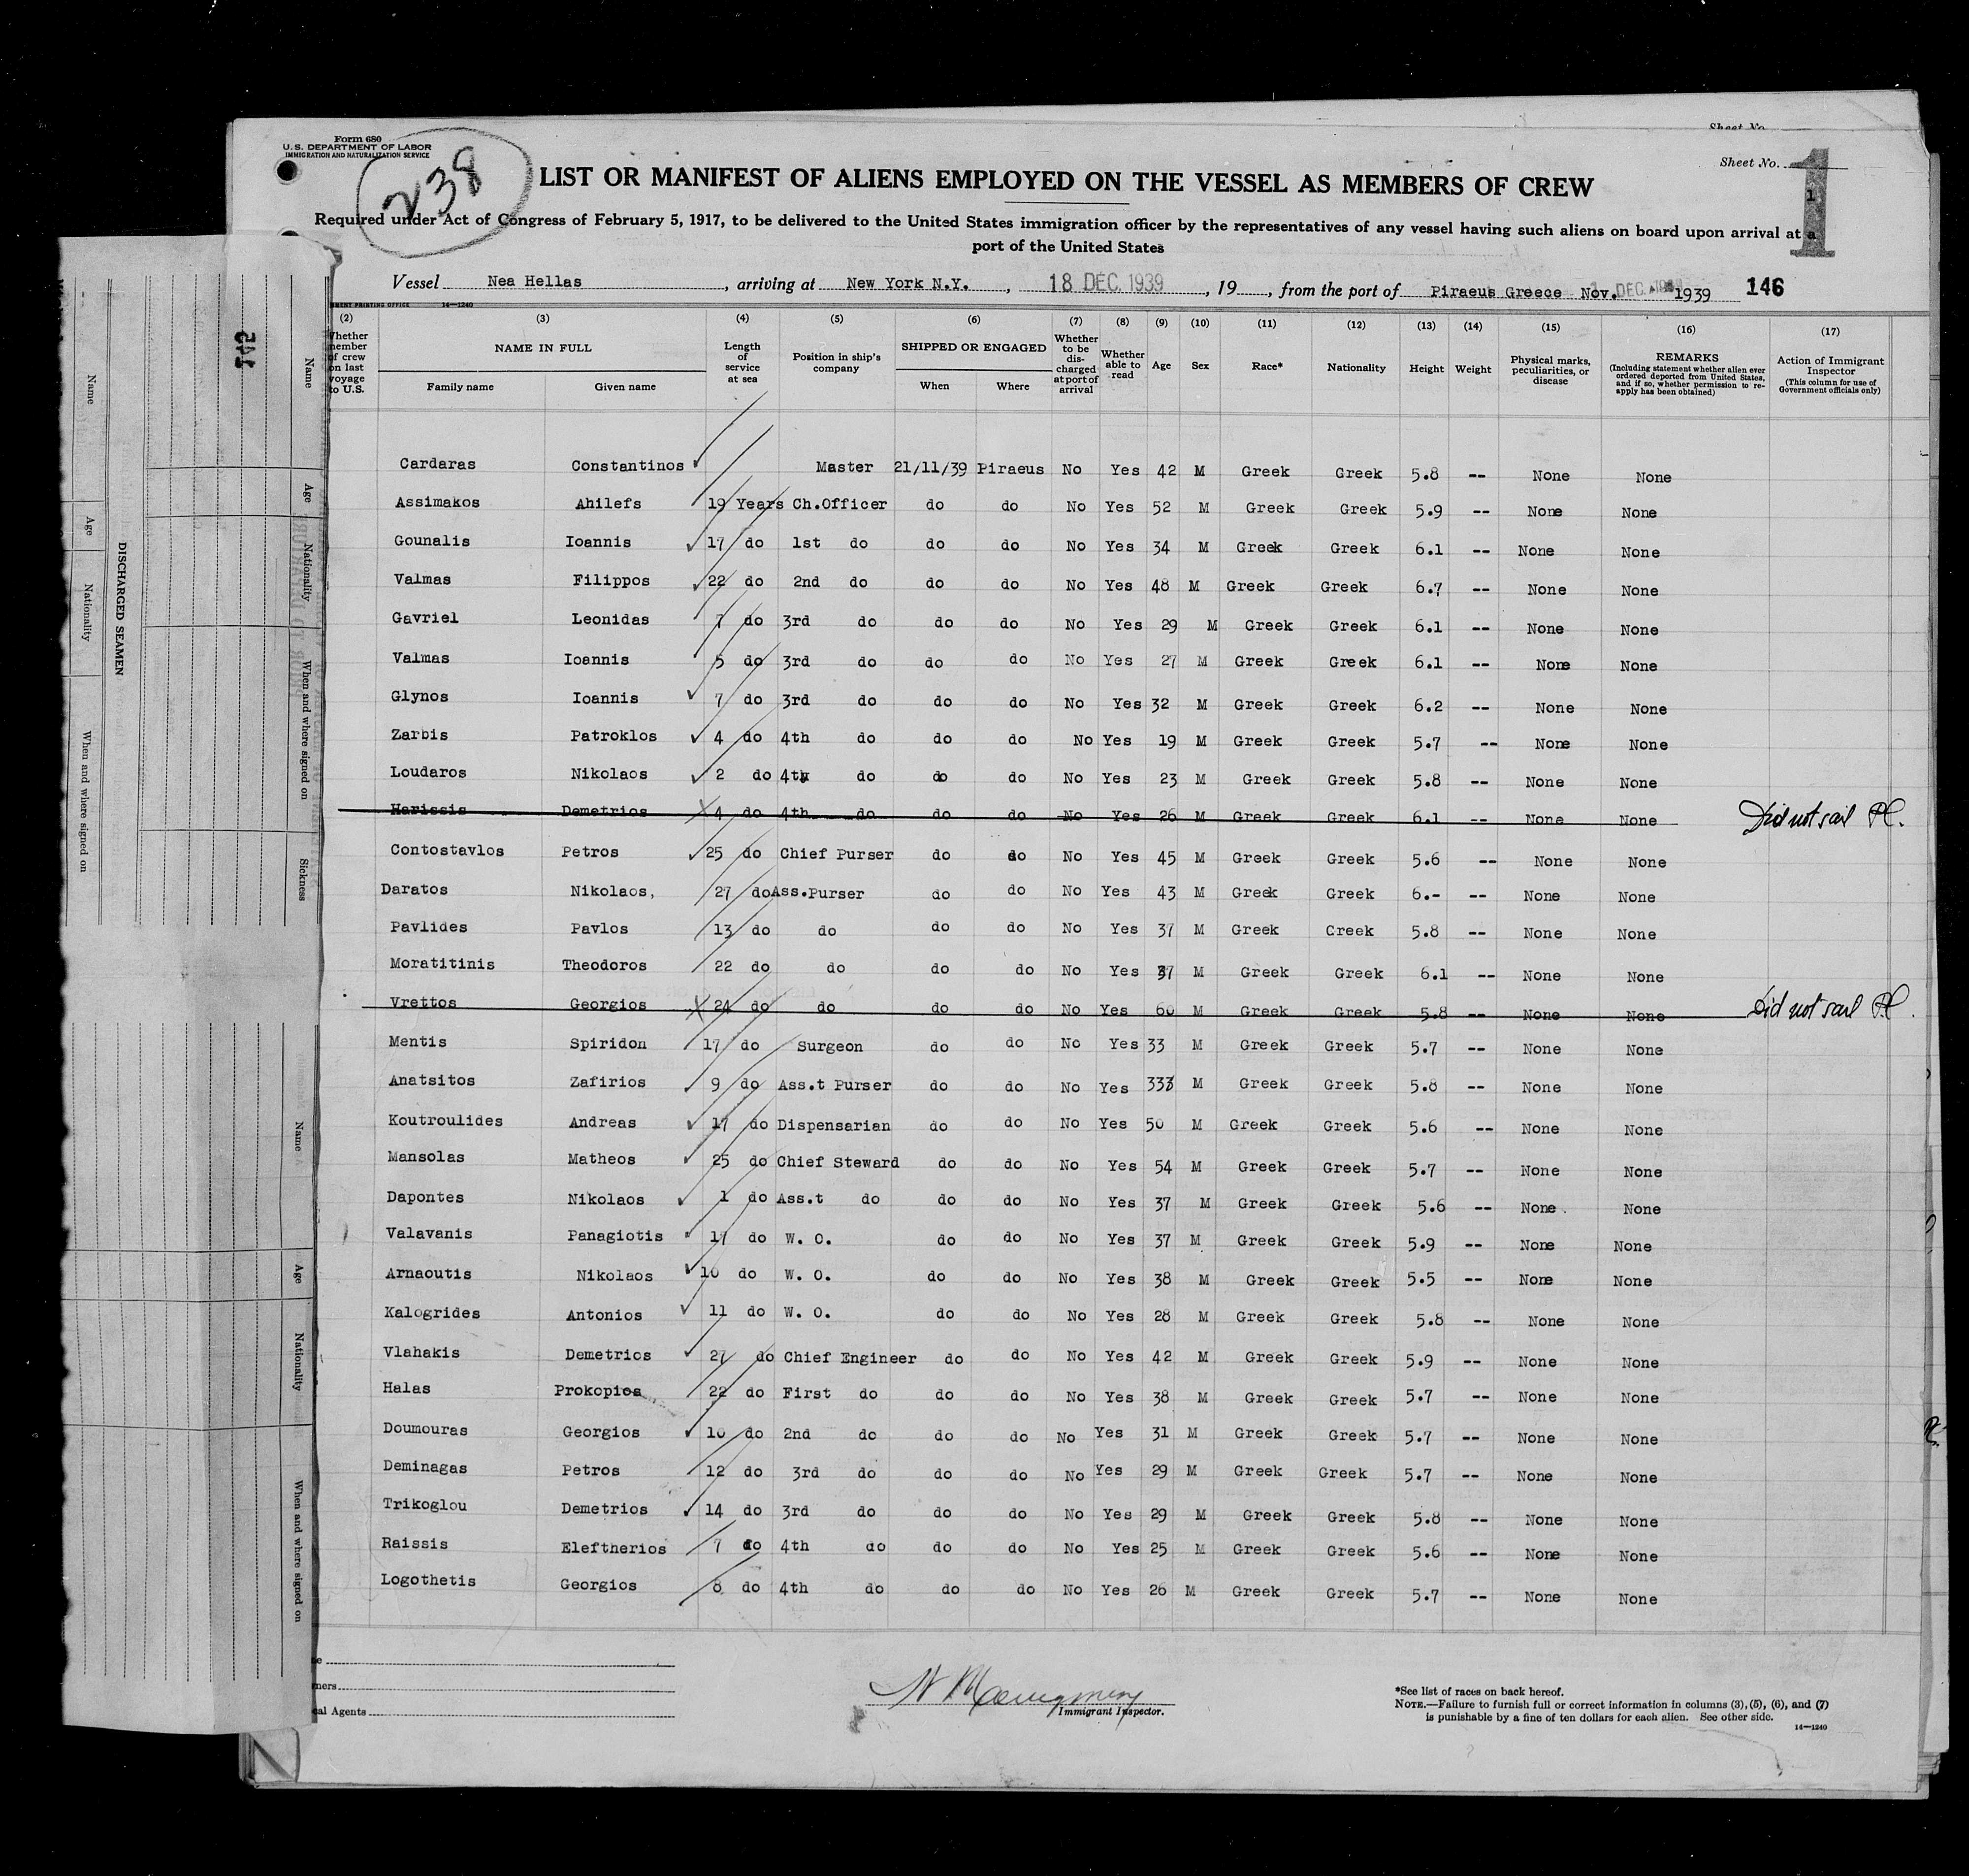 Form 680
U. S. DEPARTMENT OF LABOR
IMMIGRATION AND NATURALIZATION SERVICE
238
Sheet No.
Sheet No. 1
1
LIST OR MANIFEST OF ALIENS EMPLOYED ON THE VESSEL AS MEMBERS OF CREW
Required under Act of Congress of February 5, 1917, to be delivered to the United States immigration officer by the representatives of any vessel having such aliens on board upon arrival at a
port of the United States
Vessel Nea Hellas, arriving at New York N.Y., 18 DEC. 1939, 19, from the port of Piraeus Greece Nov. DEC. 1939 146
PRINTING OFFICE 14—1240
(2) (3) (4) (5) (6) (7) (8) (9) (10) (11) (12) (13) (14) (15) (16) (17)
Whether member of crew on last voyage to U.S.
NAME IN FULL
Family name Given name
Length of service at sea
Position in ship's company
SHIPPED OR ENGAGED
When Where
Whether to be discharged at port of arrival
Whether able to read
Age
Sex
Race*
Nationality
Height
Weight
Physical marks, peculiarities, or disease
REMARKS
(Including statement whether alien ever ordered deported from United States, and if so, whether permission to re-apply has been obtained)
Action of Immigrant Inspector
(This column for use of Government officials only)
Cardaras Constantinos Master 21/11/39 Piraeus No Yes 42 M Greek Greek 5.8 -- None None
Assimakos Ahilefs 19 Years Ch.Officer do do No Yes 52 M Greek Greek 5.9 -- None None
Gounalis Ioannis 17 do 1st do do do No Yes 34 M Greek Greek 6.1 -- None None
Valmas Filippos 22 do 2nd do do do No Yes 48 M Greek Greek 6.7 -- None None
Gavriel Leonidas 7 do 3rd do do do No Yes 29 M Greek Greek 6.1 -- None None
Valmas Ioannis 5 do 3rd do do do No Yes 27 M Greek Greek 6.1 -- None None
Glynos Ioannis 7 do 3rd do do do No Yes 32 M Greek Greek 6.2 -- None None
Zarbis Patroklos 4 do 4th do do do No Yes 19 M Greek Greek 5.7 -- None None
Loudaros Nikolaos 2 do 4th do do do No Yes 23 M Greek Greek 5.8 -- None None
Harissis Demetrios 4 do 4th do do do No Yes 26 M Greek Greek 6.1 -- None None Did not sail
Contostavlos Petros 25 do Chief Purser do do No Yes 45 M Greek Greek 5.6 -- None None
Daratos Nikolaos, 27 do Ass.Purser do do No Yes 43 M Greek Greek 6.- -- None None
Pavlides Pavlos 13 do do do do No Yes 37 M Greek Creek 5.8 -- None None
Moratitinis Theodoros 22 do do do do No Yes 37 M Greek Greek 6.1 -- None None
Vrettos Georgios 24 do do do do No Yes 60 M Greek Greek 5.8 -- None None Did not sail
Mentis Spiridon 17 do Surgeon do do No Yes 33 M Greek Greek 5.7 -- None None
Anatsitos Zafirios 9 do Ass.t Purser do do No Yes 333 M Greek Greek 5.8 -- None None
Koutroulides Andreas 17 do Dispensarian do do No Yes 50 M Greek Greek 5.6 -- None None
Mansolas Matheos 25 do Chief Steward do do No Yes 54 M Greek Greek 5.7 -- None None
Dapontes Nikolaos 1 do Ass.t do do do No Yes 37 M Greek Greek 5.6 -- None None
Valavanis Panagiotis 17 do W. O. do do No Yes 37 M Greek Greek 5.9 -- None None
Arnaoutis Nikolaos 10 do W. O. do do No Yes 38 M Greek Greek 5.5 -- None None
Kalogrides Antonios 11 do W. O. do do No Yes 28 M Greek Greek 5.8 -- None None
Vlahakis Demetrios 27 do Chief Engineer do do No Yes 42 M Greek Greek 5.9 -- None None
Halas Prokopios 22 do First do do do No Yes 38 M Greek Greek 5.7 -- None None
Doumouras Georgios 10 do 2nd do do do No Yes 31 M Greek Greek 5.7 -- None None
Deminagas Petros 12 do 3rd do do do No Yes 29 M Greek Greek 5.7 -- None None
Trikoglou Demetrios 14 do 3rd do do do No Yes 29 M Greek Greek 5.8 -- None None
Raissis Eleftherios 7 do 4th do do do No Yes 25 M Greek Greek 5.6 -- None None
Logothetis Georgios 8 do 4th do do do No Yes 26 M Greek Greek 5.7 -- None None
Agents
Immigrant Inspector.
*See list of races on back hereof.
NOTE.—Failure to furnish full or correct information in columns (3), (5), (6), and (7)
is punishable by a fine of ten dollars for each alien. See other side.
14—1240
DISCHARGED SEAMEN
Name Age Nationality When and where signed on
Name Age Nationality When and where signed on Sickness
Name Age Nationality When and where signed on